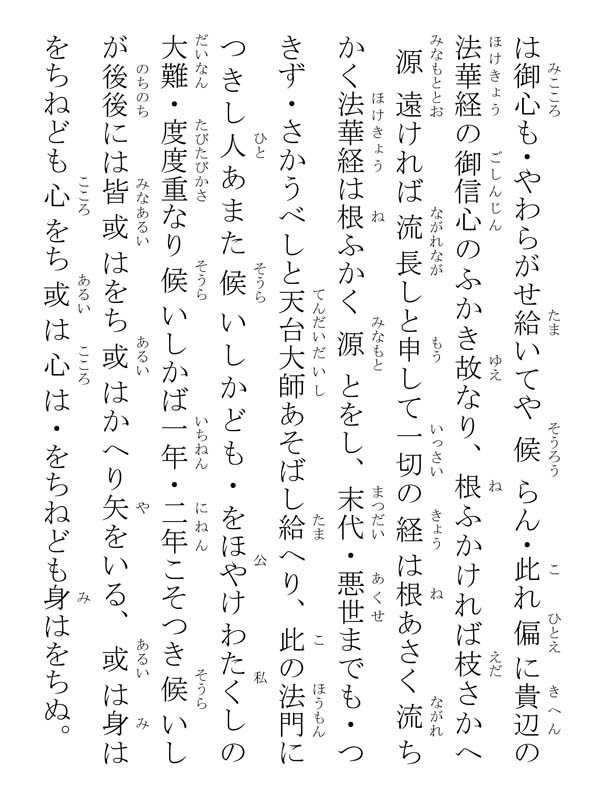 は御心も・やわらがせ給いてや候らん・此れ偏に貴辺の
法華経の御信心のふかき故なり、根ふかければ枝さかへ
源遠ければ流長しと申して一切の経は根あさく流ち
かく法華経は根ふかく源とをし、末代・悪世までも・つ
きず・さかうべしと天台大師あそばし給へり、此の法門に
つきし人あまた候いしかども・をほやけわたくしの
大難・度度重なり候いしかば一年・二年こそつき候いし
が後後には皆或はをち或はかへり矢をいる、或は身は
をちねども心をち或は心は・をちねども身はをちぬ。